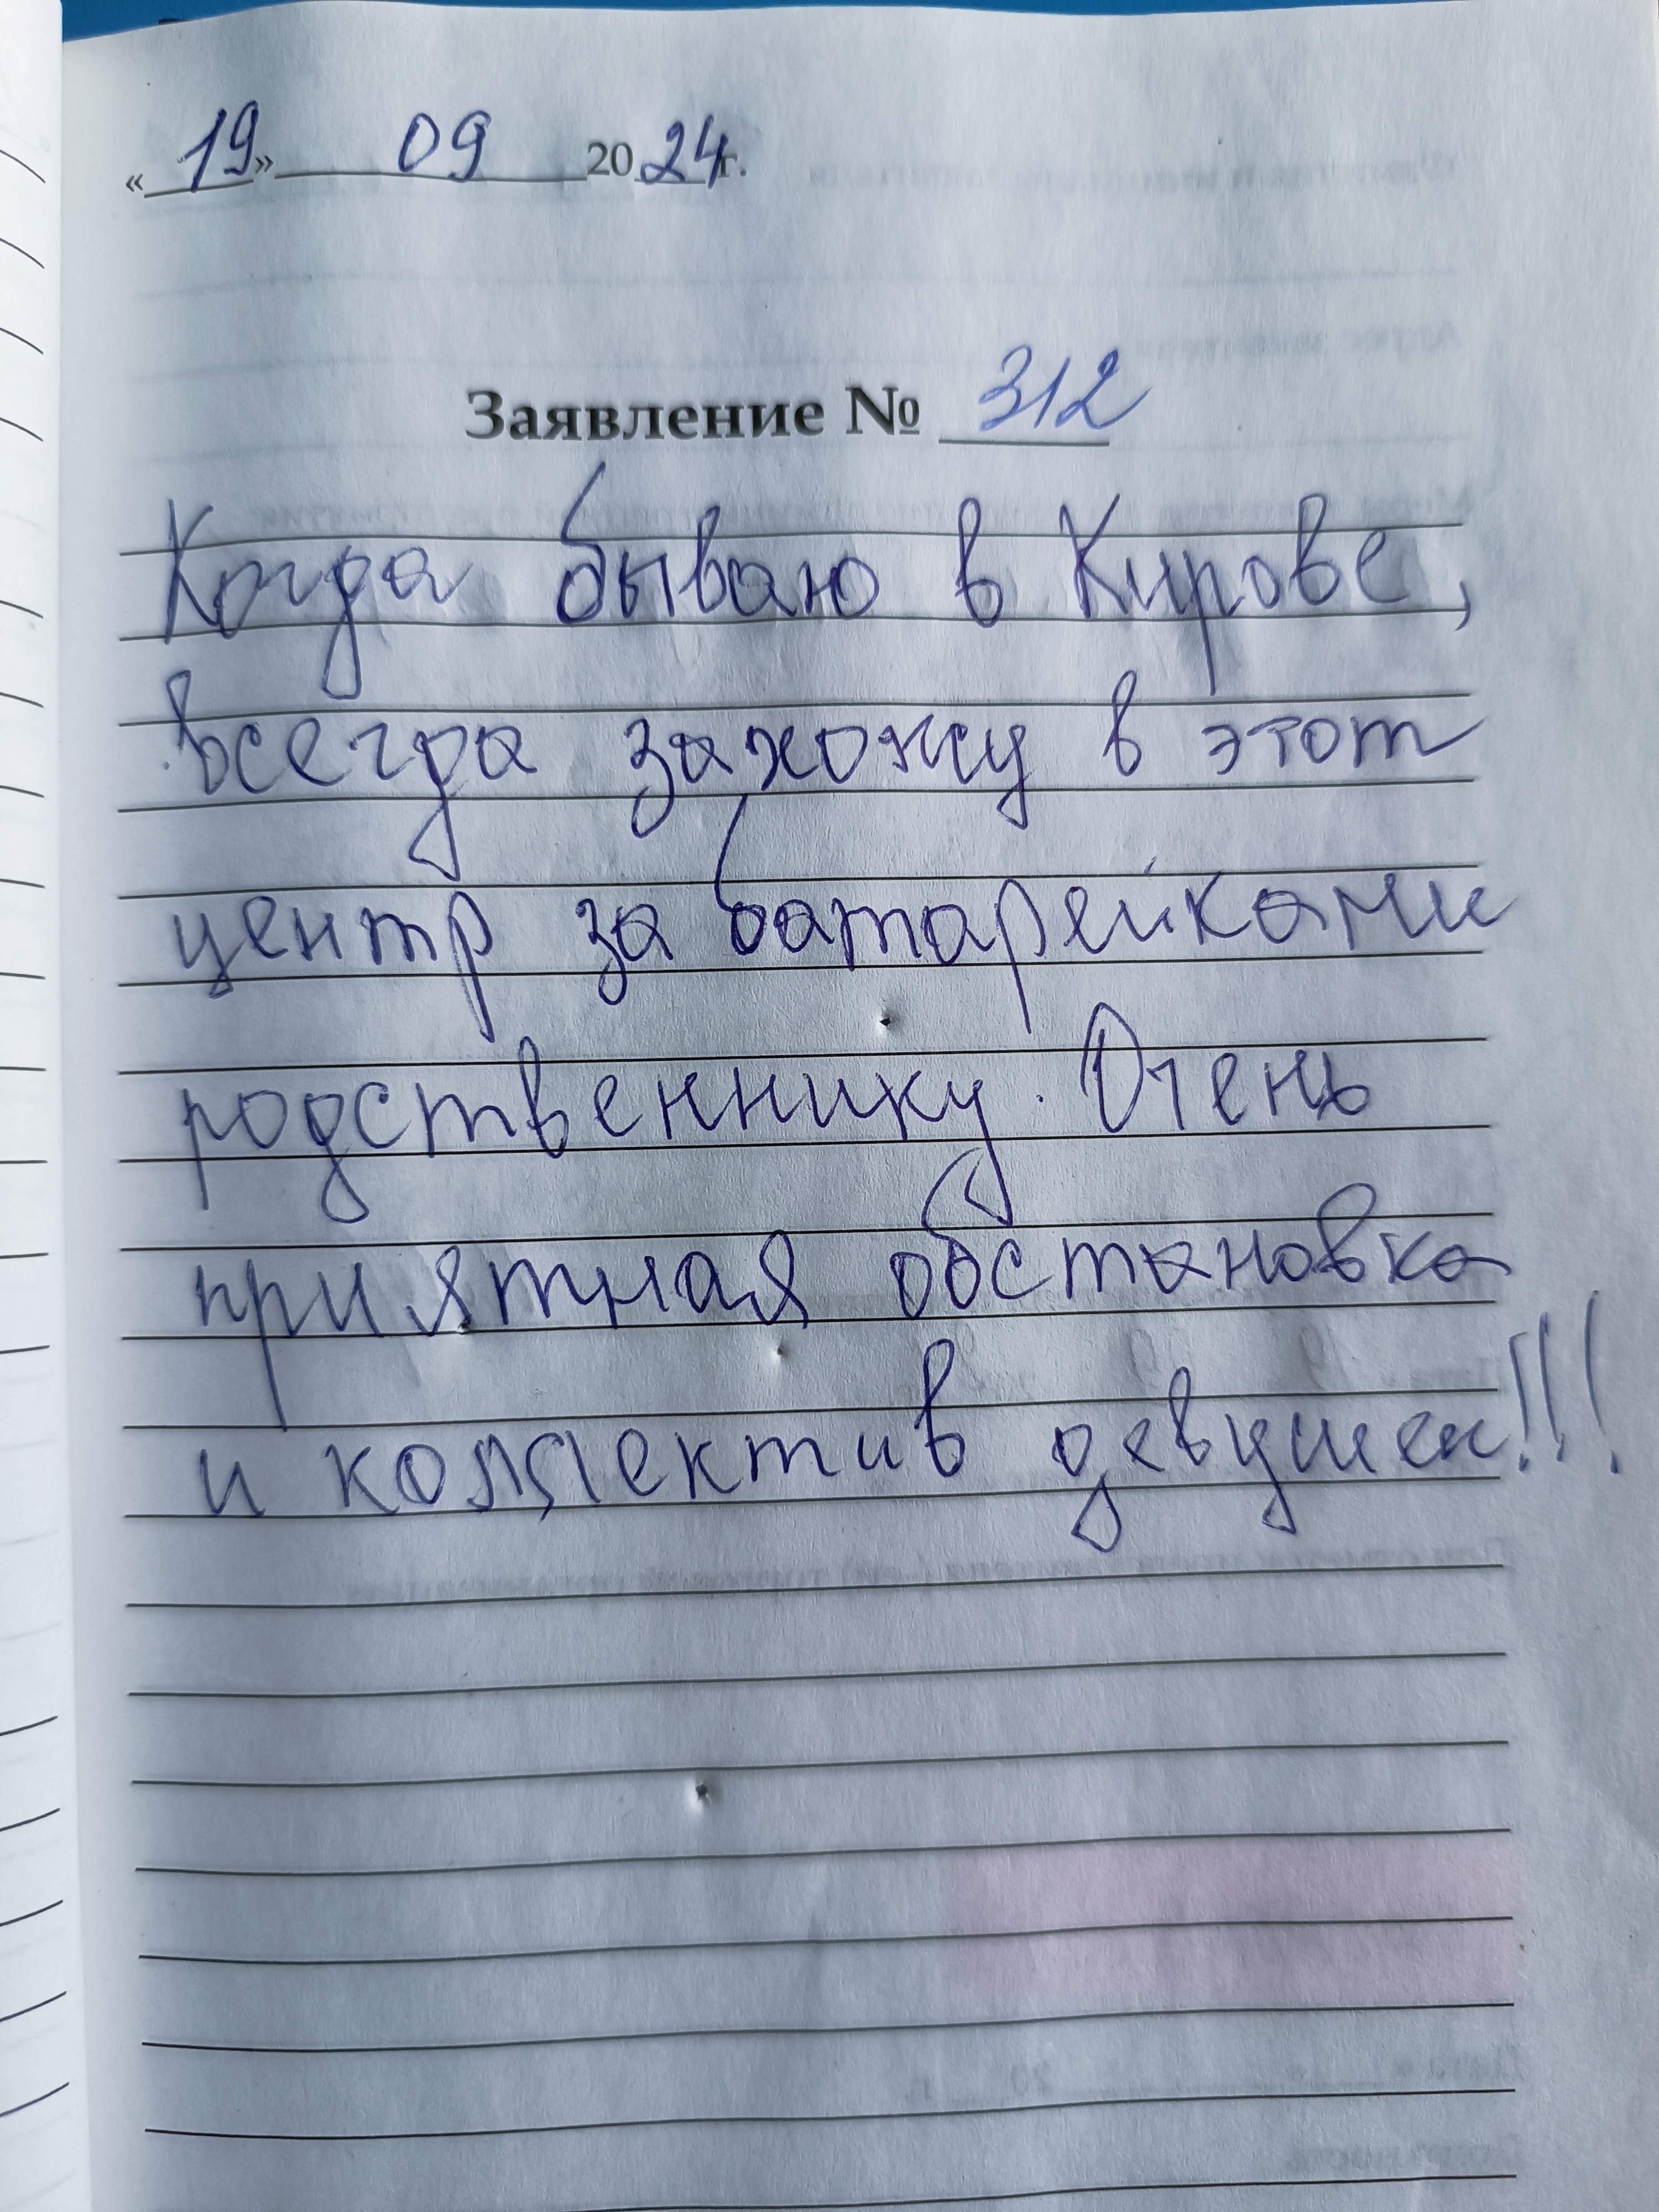 «19» 09 2024г.
Заявление № 312
Когда бываю в Кирове,
всегда захожу в этот
центр за батарейками
родственнику. Очень
приятная обстановка
и коллектив девушек!!!